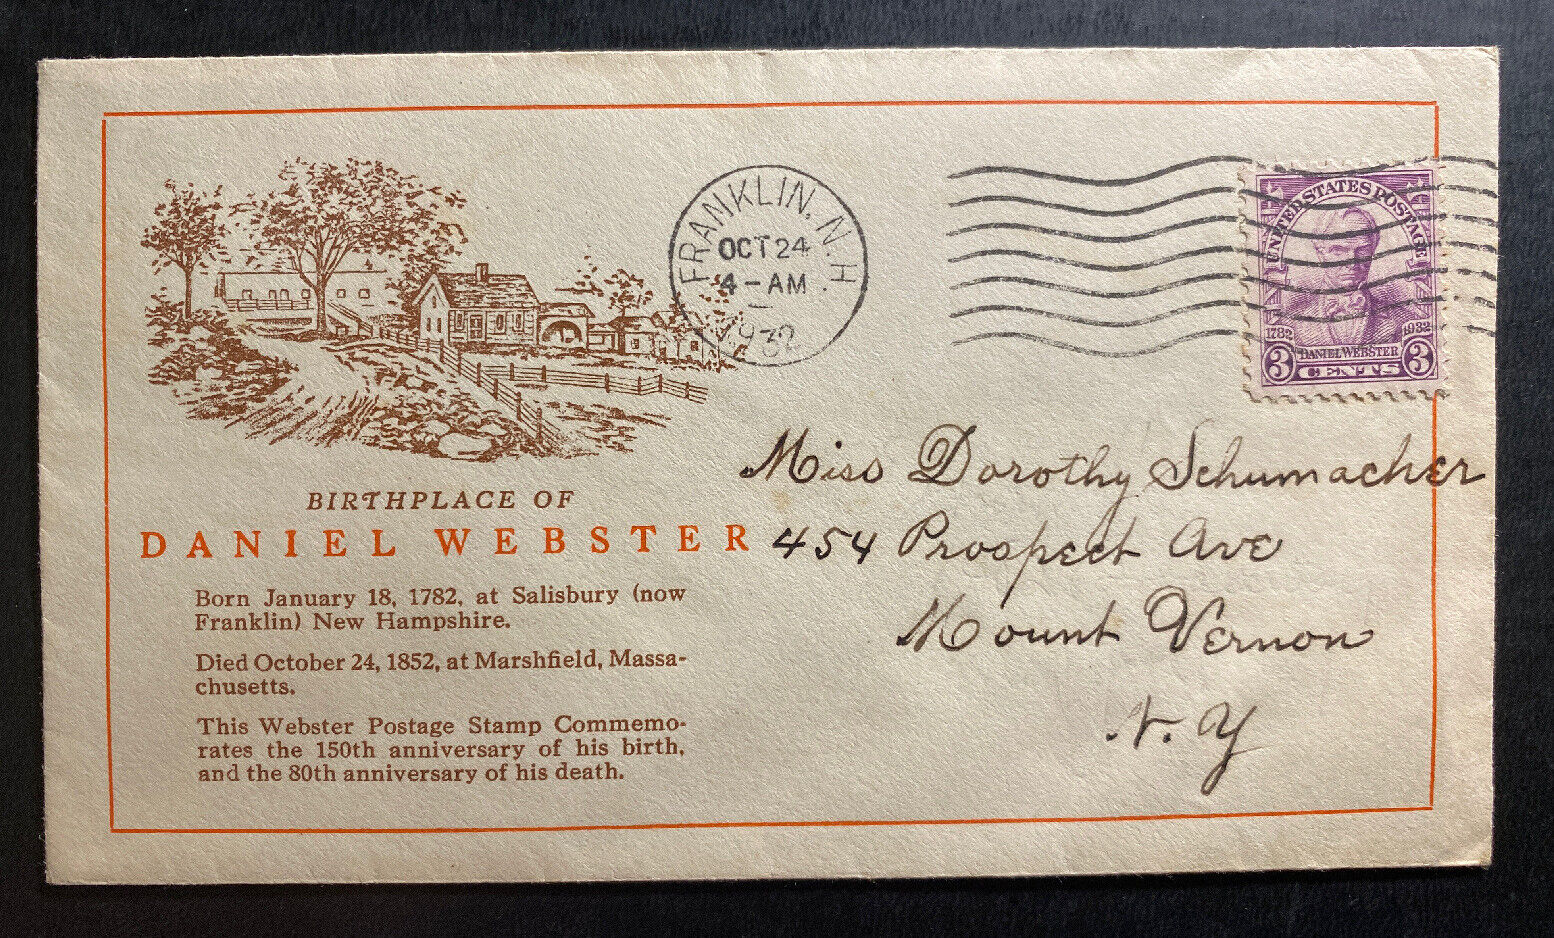 FRANKLIN. N.H.
OCT 24
4 - AM
1932
UNITED STATES POSTAGE
1782 1932
DANIEL WEBSTER
3 CENTS 3
Miss Dorothy Schumacher
454 Prospect Ave
Mount Vernon
N. Y
BIRTHPLACE OF
DANIEL WEBSTER
Born January 18, 1782, at Salisbury (now
Franklin) New Hampshire.
Died October 24, 1852, at Marshfield, Massa-
chusetts.
This Webster Postage Stamp Commemo-
rates the 150th anniversary of his birth,
and the 80th anniversary of his death.